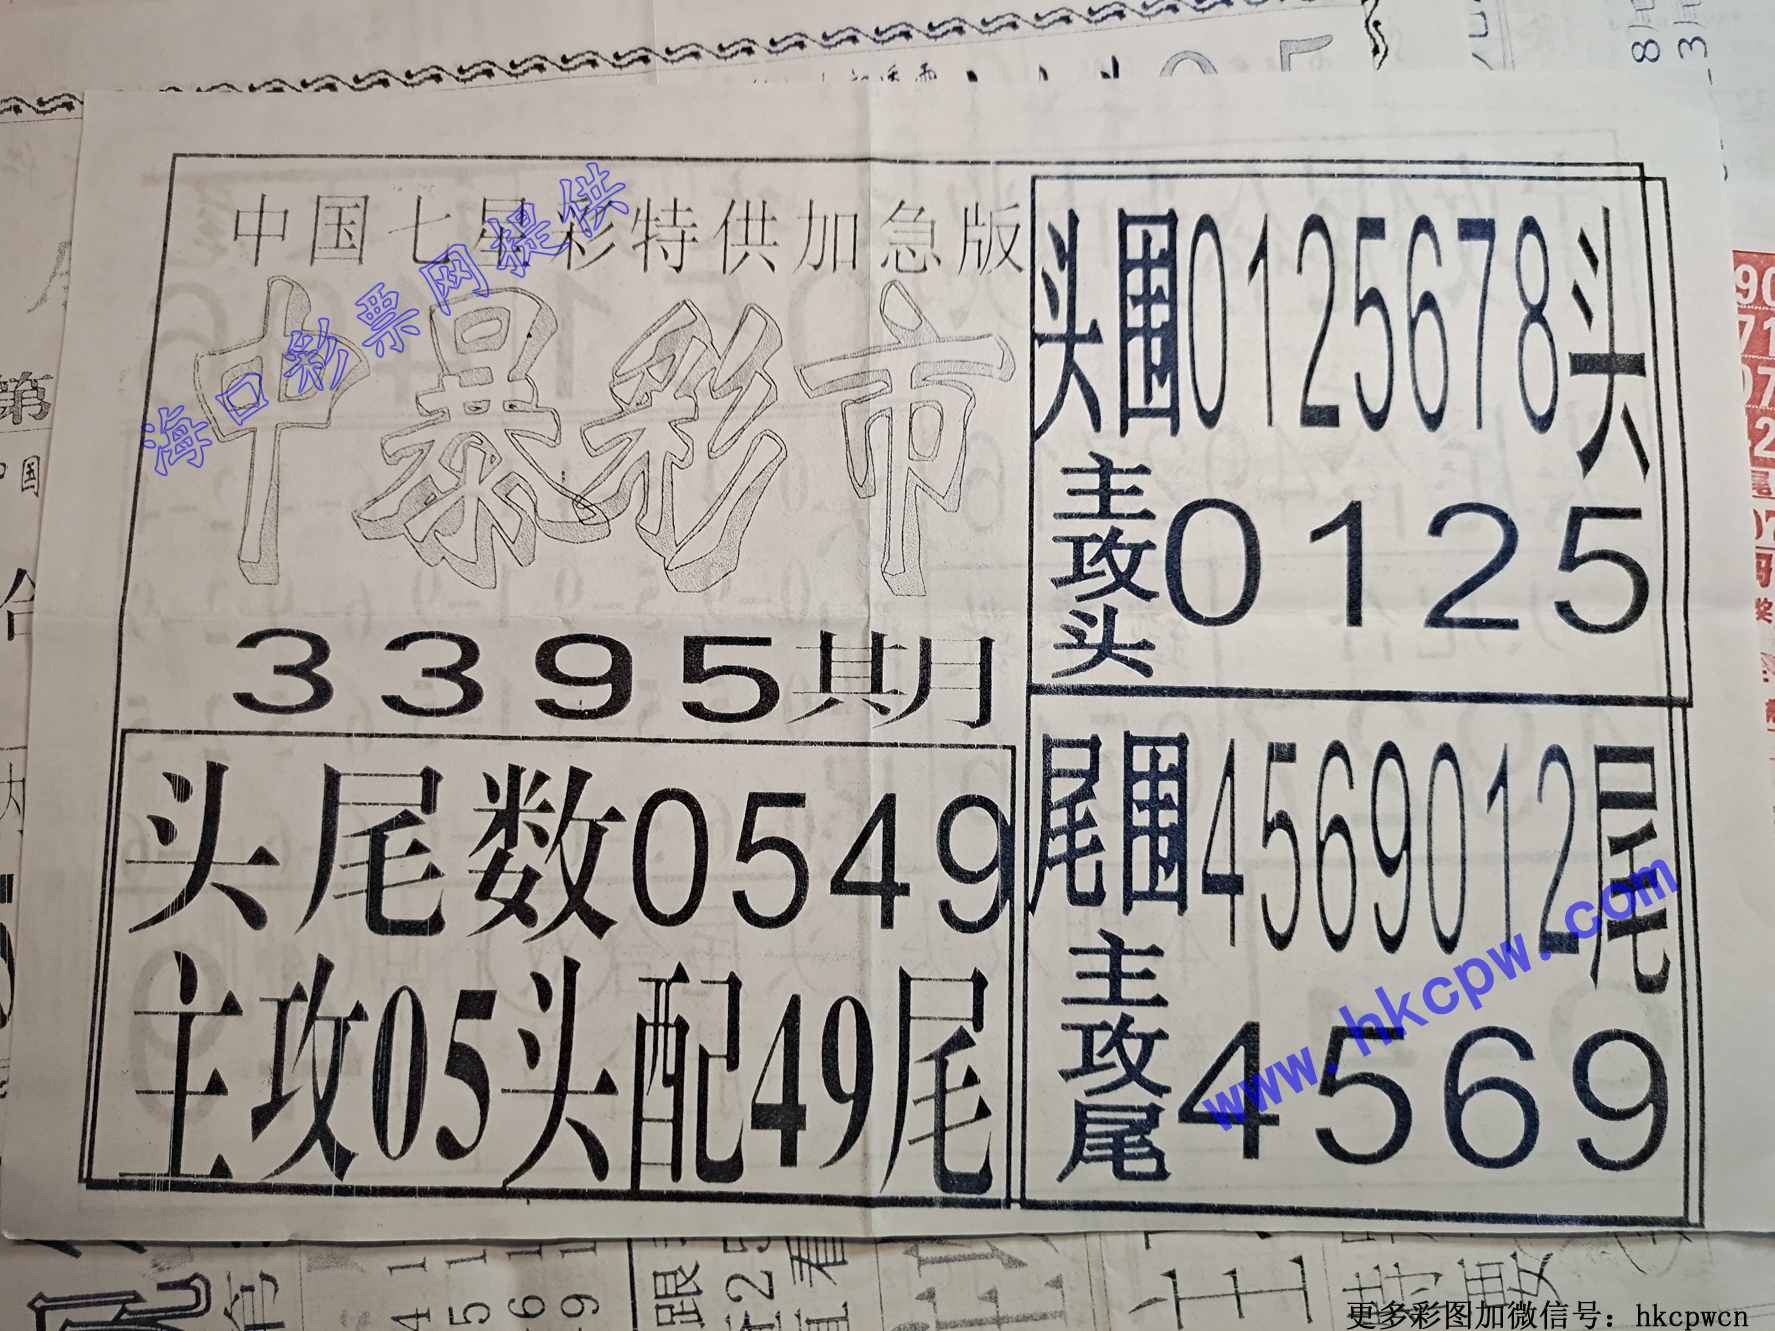 中国七星彩特供加急版
中暴彩市
3395期
头尾数0549
主攻05头配49尾
头围0125678头
主攻头0125
尾围4569012尾
主攻尾4569
海口彩票网提供
www.hkcpw.com
更多彩图加微信号：hkcpwcn